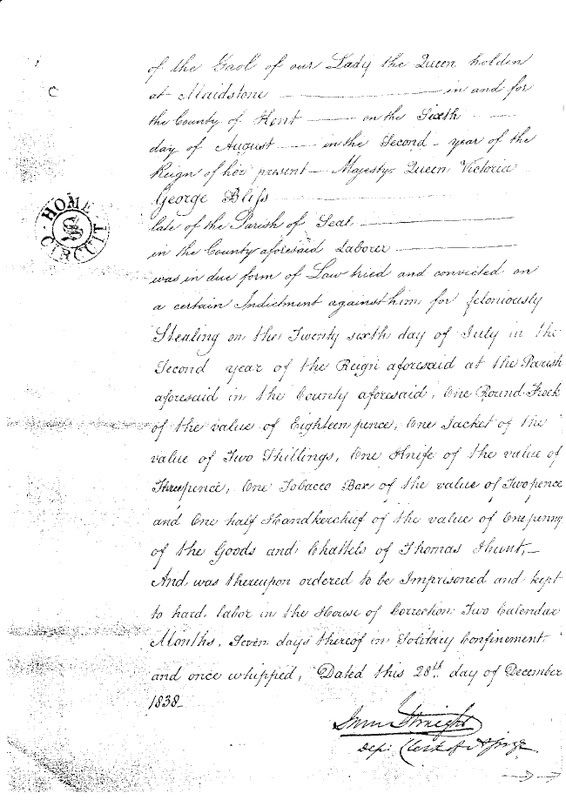 of the Gaol of our Lady the Queen holden
at Maidstone in and for
the County of Kent on the Sixth
day of August in the Second year of the
Reign of her present Majesty Queen Victoria
George Bliss
late of the Parish of Seal
in the County aforesaid Laborer
HOME CIRCUIT
was in due form of Law tried and convicted on
a certain Indictment against him for feloniously
Stealing on the Twenty sixth day of July in the
Second year of the Reign aforesaid at the Parish
aforesaid in the County aforesaid, One Round Frock
of the value of Eighteen pence, One Jacket of the
value of Two Shillings, One Knife of the value of
Threepence, One Tobacco Box of the value of Twopence
and One half Handkerchief of the value of One penny
of the Goods and Chattels of Thomas Hunt,—
And was thereupon ordered to be Imprisoned and kept
to hard labor in the House of Correction Two Calendar
Months, Seven days thereof in Solitary Confinement
and once whipped, Dated this 28th day of December
1838
Knight
Dep: Clerk of Assize